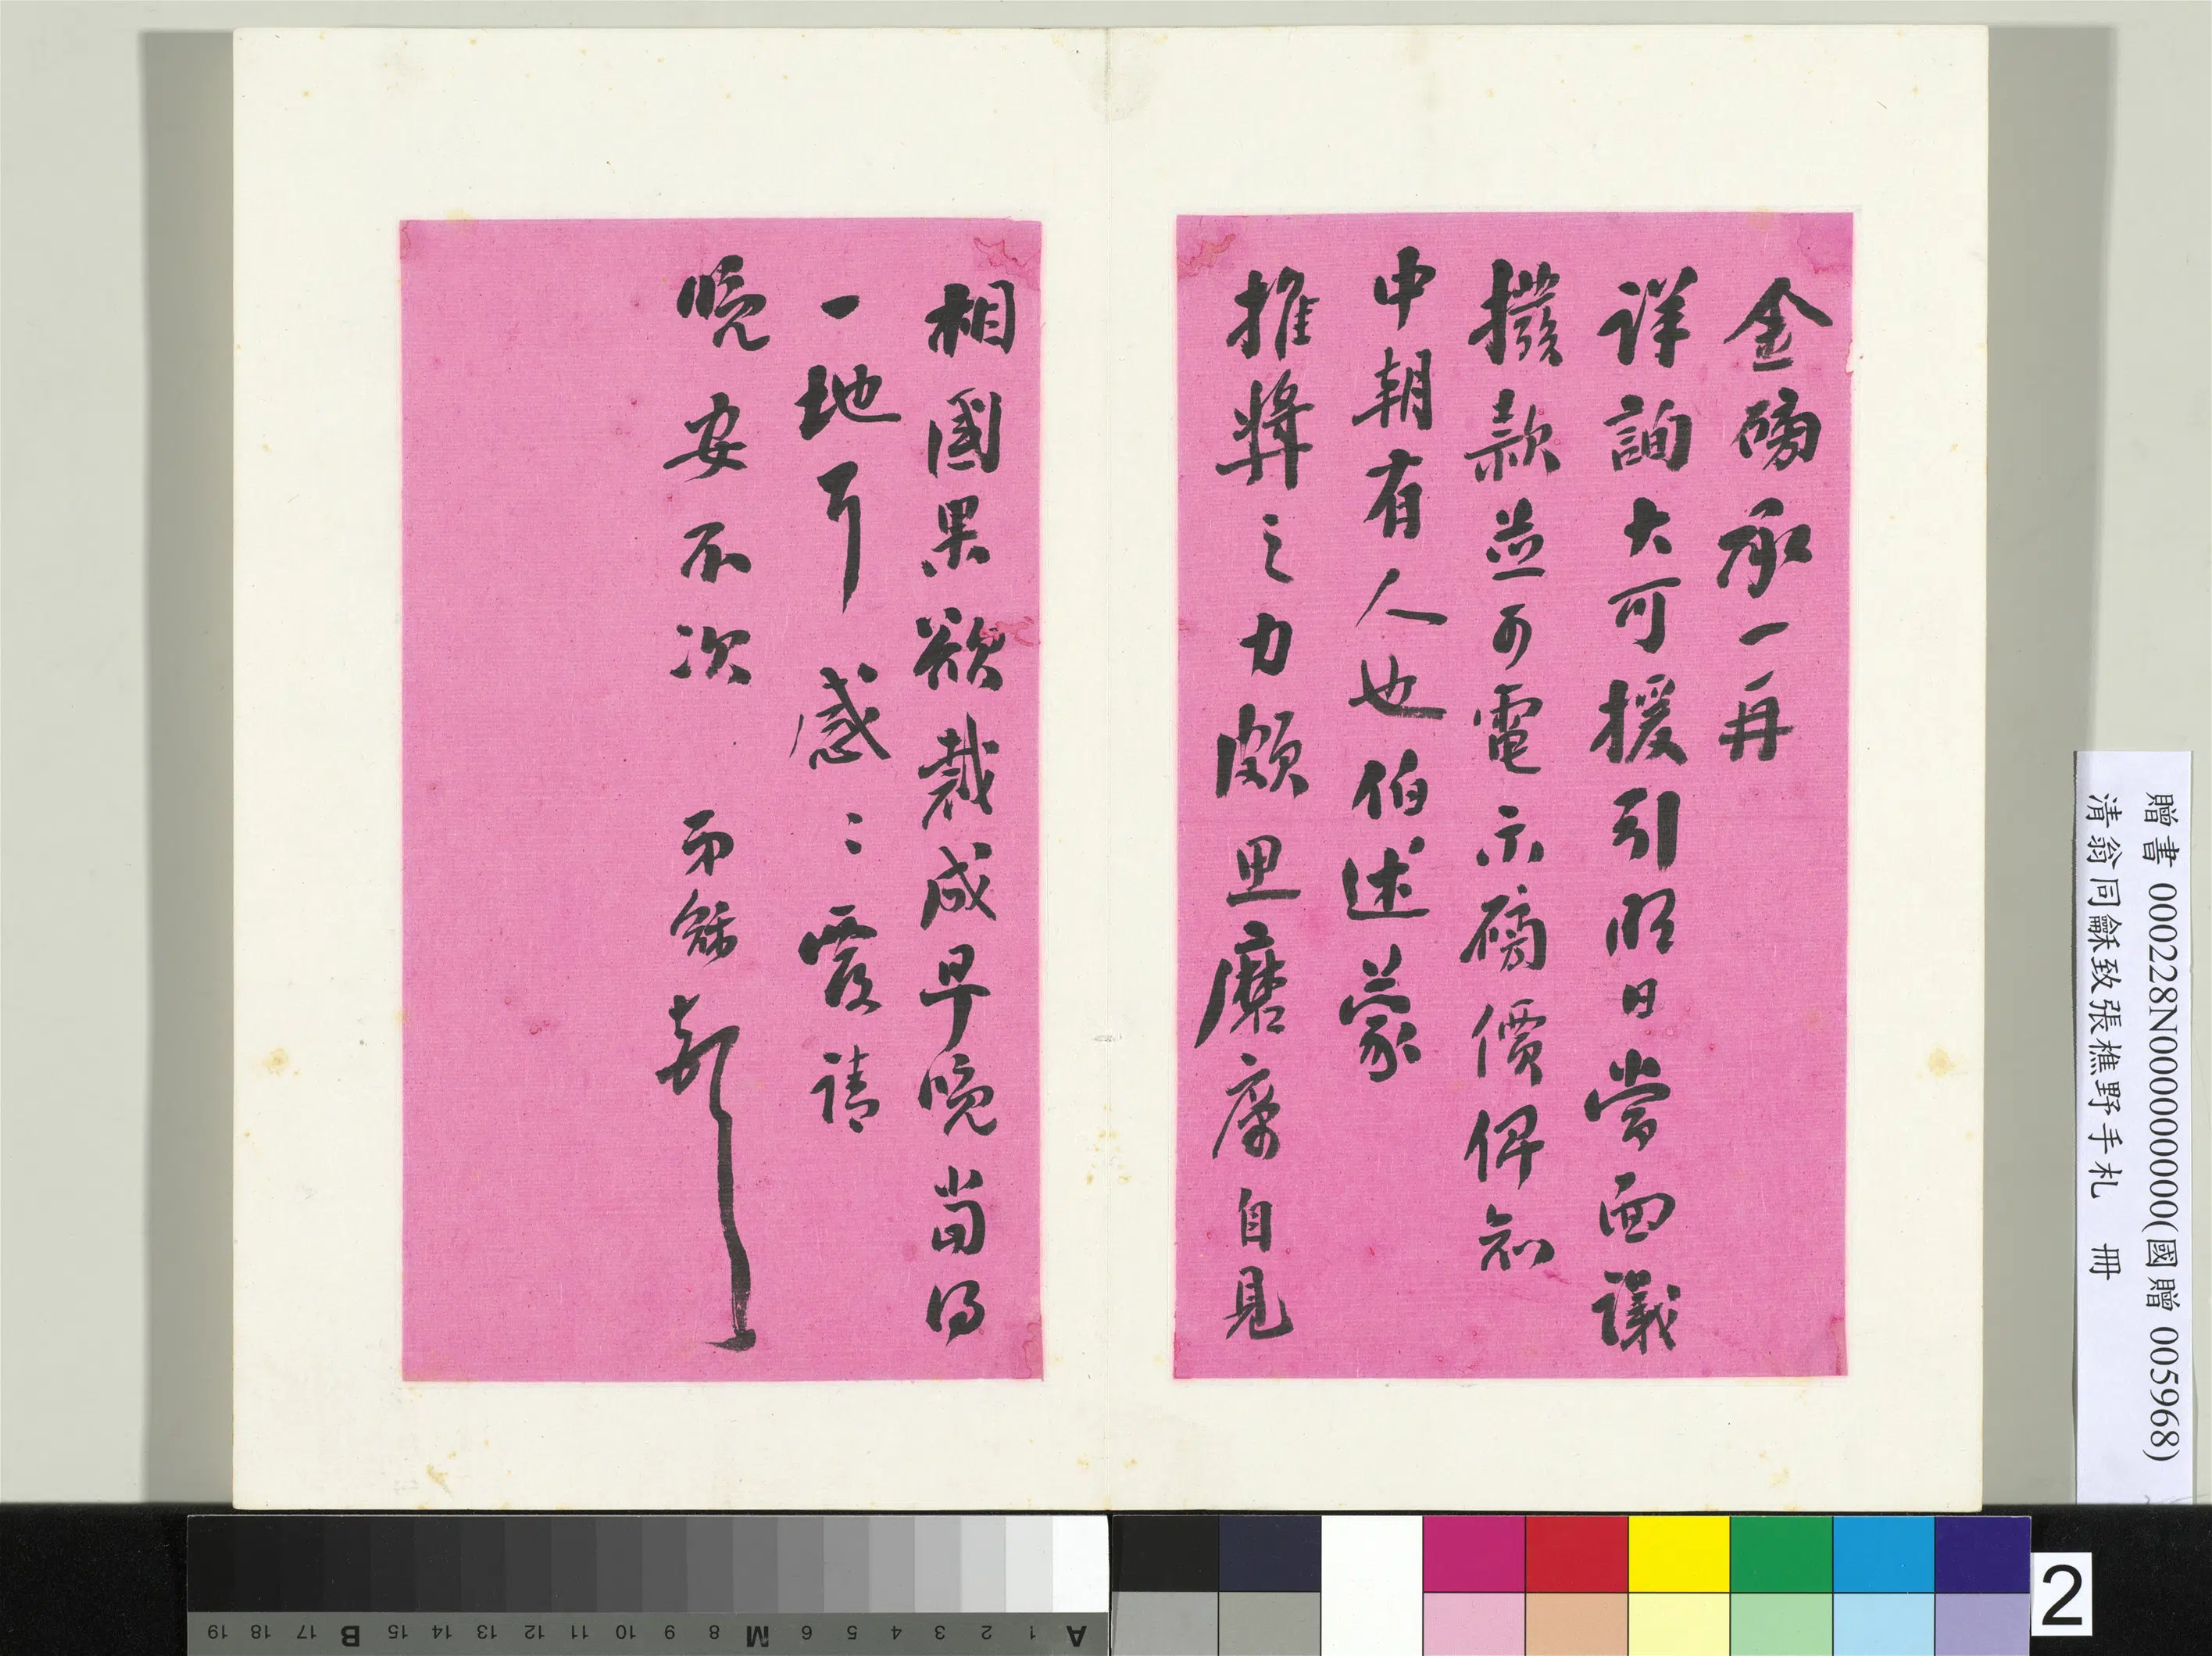 金磅承一再
詳詢大可援引明日當面議
撥款並可電示磅價俾知
中朝有人也伯述蒙
推獎之力頗思磨厲自見
相國果欲裁成早晚當得
一地耳 感〻 覆請
晚安不次 弟龢頓
贈書 000228N000000000(國贈 005968)
清翁同龢致張樵野手札 冊
2
A 1 2 3 4 5 6 M 8 9 10 11 12 13 14 15 B 17 18 19